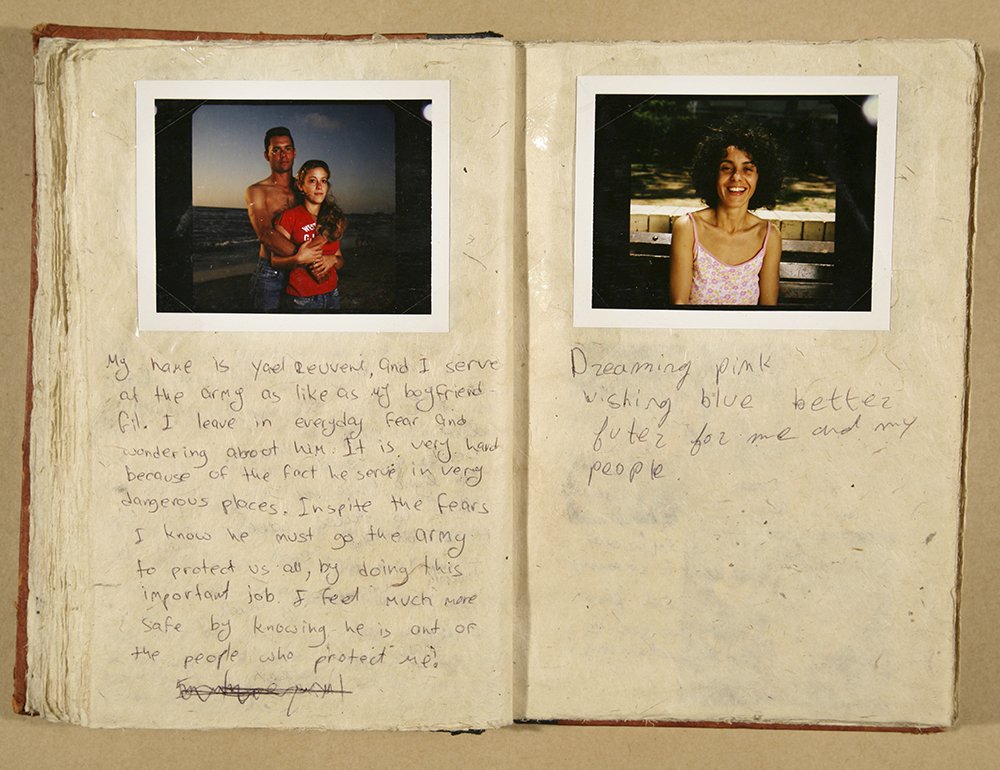 WEST
My name is Yael Reuveni, and I serve
at the army as like as my boyfriend
Gil. I leave in everyday fear and
wondering aboot him. It is very hard
because of the fact he serve in very
dangerous places. Inspite the fears
I know he must go the army
to protect us all, by doing this
important job. I feel much more
safe by knowing he is ont of
the people who protect me!
Dreaming pink
wishing blue better
futer for me and my
people.